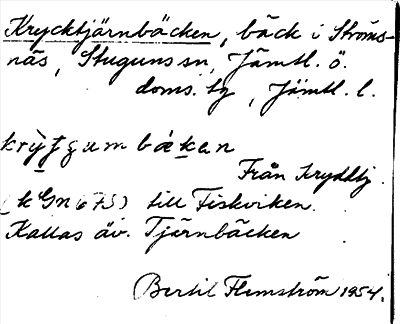 Krycktjärnbäcken, bäck i Ströms-
näs, Stuguns sn, Jämtl. ö.
doms. tg, Jämtl. l.
Från Kryddtj.
till Fiskviken.
Kallas äv. Tjärnbäcken
Bertil Flemström 1954.